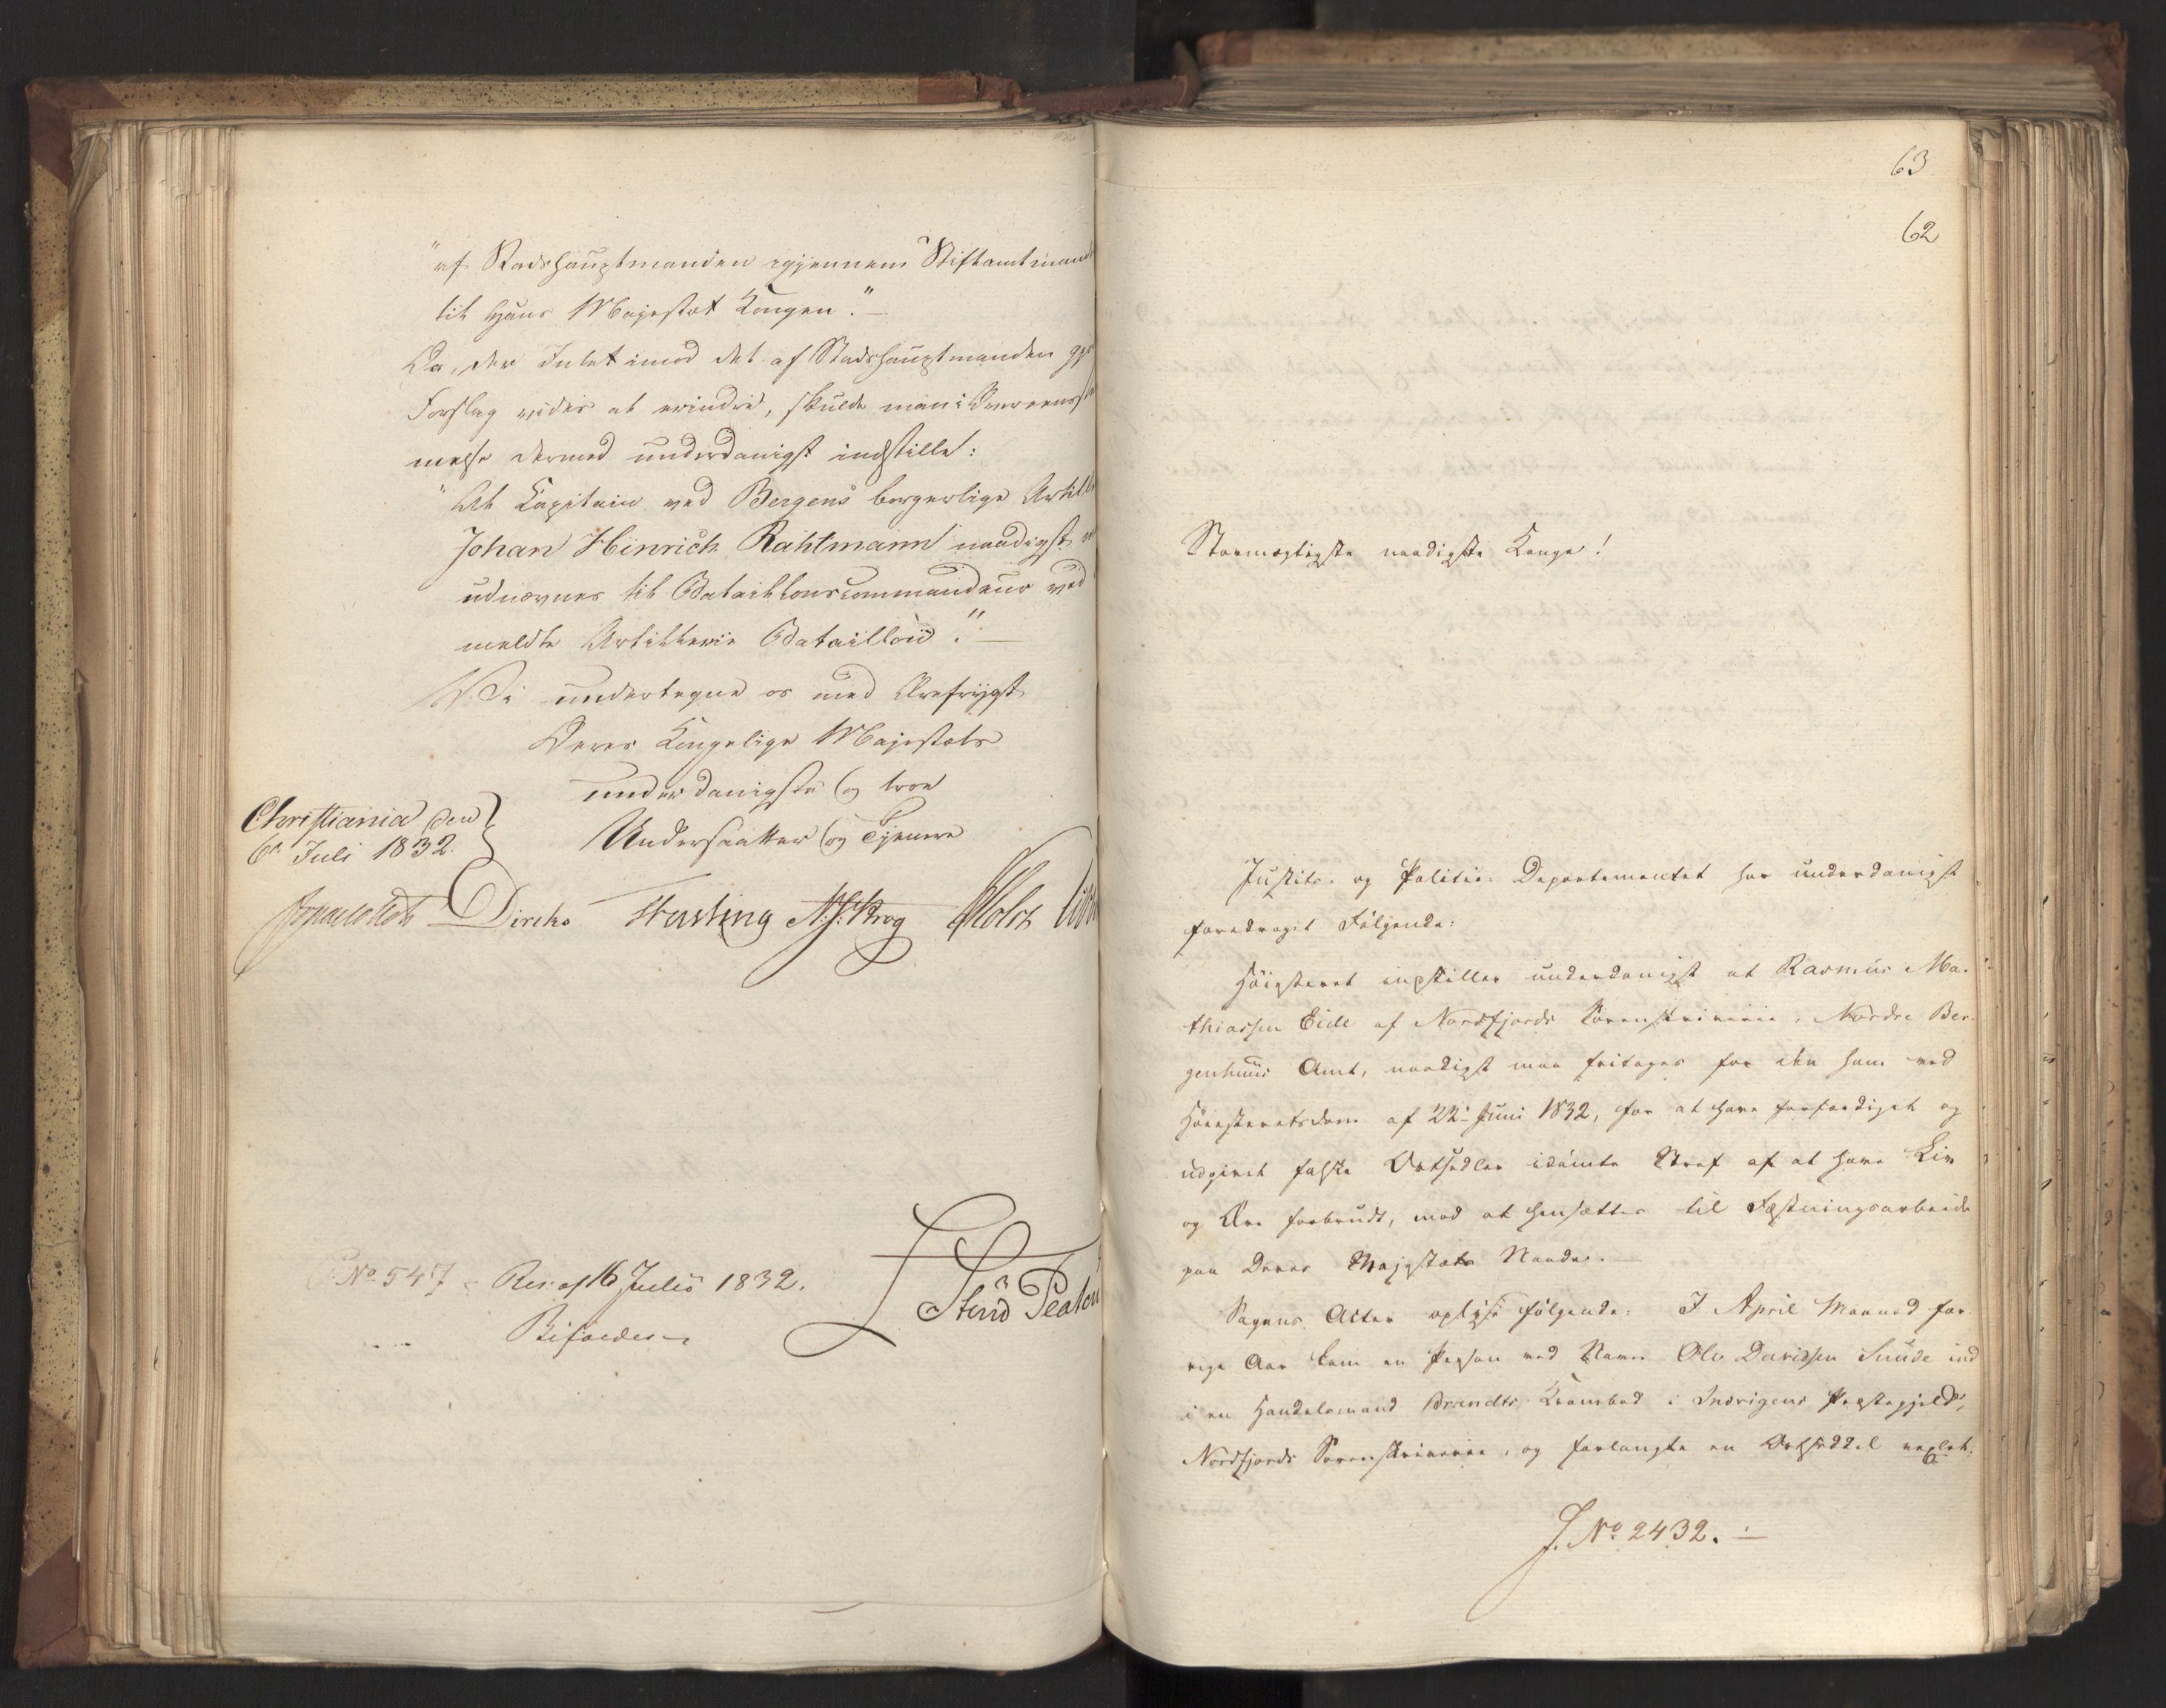 "af Stadshauptmanden igjennem Stiftamtmand
til Hans Majestæt Kongen."—
Da, der Intet imod det af Stadshauptmanden gj
Forslag vides at erindre, skulde man i Overeens
melse dermed underdanigst indstille:
"At Capitain ved Bergens borgerlige Artill
Johan Hinrich Rahtmann naadigst
udnævnes til Bataillonscommandeur ved
meldte Artillerie Bataillon."—
Vi undertegne os med Ærefrygt
Deres Kongelige Majestæts
underdanigste og troe
Undersaatter og Tjenere
Christiania den
6te Juli 1832.
Diriks Fasting Krog Holst
No 547 Res. af 16 Julii 1832.
Bifaldes
63
62
Stormægtigste naadigste Konge!
Justits- og Politie-Departementet har underdanigst
foredraget Følgende:
Høiesteret indstiller underdanigst at Rasmus Ma-
thiassen Eide af Nordfjords Sorenskriverie, Nordre Ber-
genhuus Amt, naadigst maa fritages for den ham ved
Høiesteretsdom af 22de Juni 1832, for at have forfærdiget og
udgivet falske Ortsedler idømte Straf af at have Liv
og Ære forbrudt, mod at hensættes til Fæstningsarbeide
paa Deres Majestæts Naade.—
Sagens Acter oplyse Følgende: I April Maaned for-
rige Aar kom en Person ved Navn Ole Davidsen Sunde ind
i en Handelsmand Brandts Krambod i Indvigens Præstegjeld,
Nordfjords Sorenskriverie, og forlangte en Ortseddel vexlet.
J. No 2432.